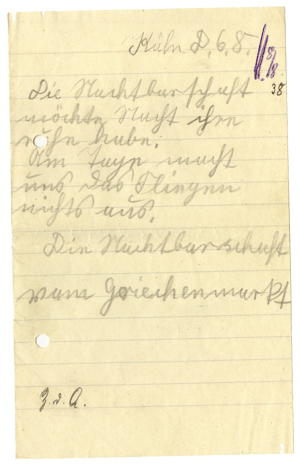 Köln D. 6. 8.
8/8
38
Die Nachtbarschaft
möchte Nacht ihre
ruhe habe.
Am Tage macht
uns das Fliegen
nichts aus.
Die Nachtbarschaft
vom Griechenmarkt
Z. d. A.